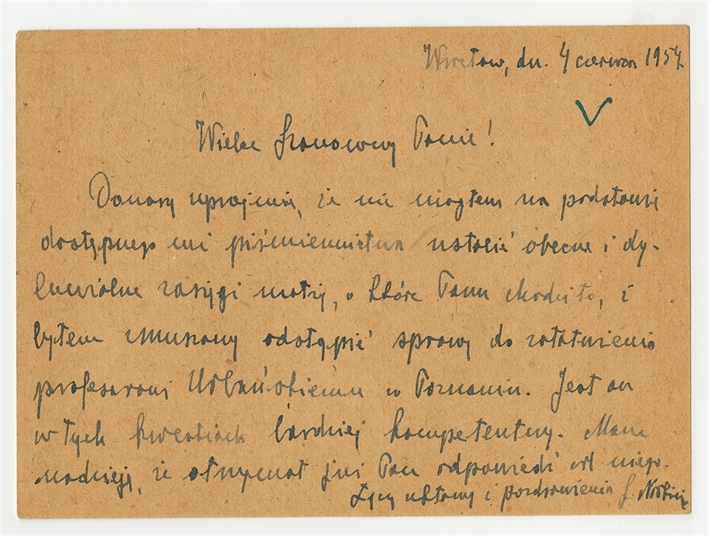 Wrocław, dn. 4 czerwca 1957.
Wielce Szanowny Panie!
Donoszę uprzejmie, że nie mogłem na podstawie
dostępnego mi piśmiennictwa ustalić obecne i dy-
luwialne zasięgi, o które Panu chodziło, i
byłem zmuszony odstąpić sprawę do załatwienia
profesorowi Urbańskiemu w Poznaniu. Jest on
w tych kwestiach bardziej kompetentny. Mam
nadzieję, że otrzymał już Pan odpowiedź od niego.
Łączę ukłony i pozdrowienia J.